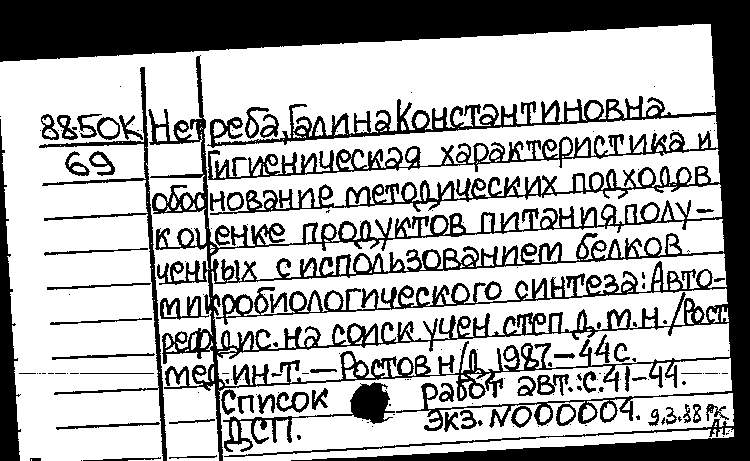 8850К Нетреба, Галина Константиновна.
69 Гигиеническая характеристика и
обоснование методических подходов
к оценке продуктов питания, полу-
ченных с использованием белков
микробиологического синтеза: Авто-
реф. дис. на соиск. учен. степ. д.м.н./Рост.
мед. ин-т. — Ростов н/Д, 1987. — 44 с.
Список работ авт.: с. 41-44.
ДСП. Экз. N000004. 9.3.88 РК